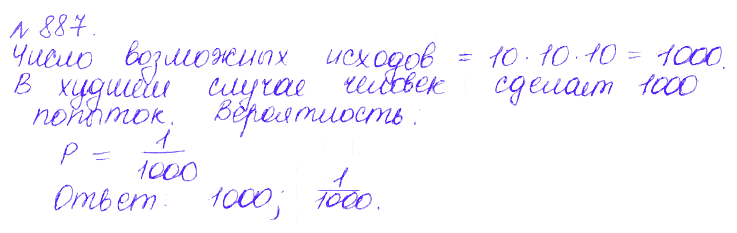 № 887.
Число возможных исходов = 10 · 10 · 10 = 1000.
В худшем случае человек сделает 1000
попыток. Вероятность:
P = 1/1000
Ответ: 1000; 1/1000.